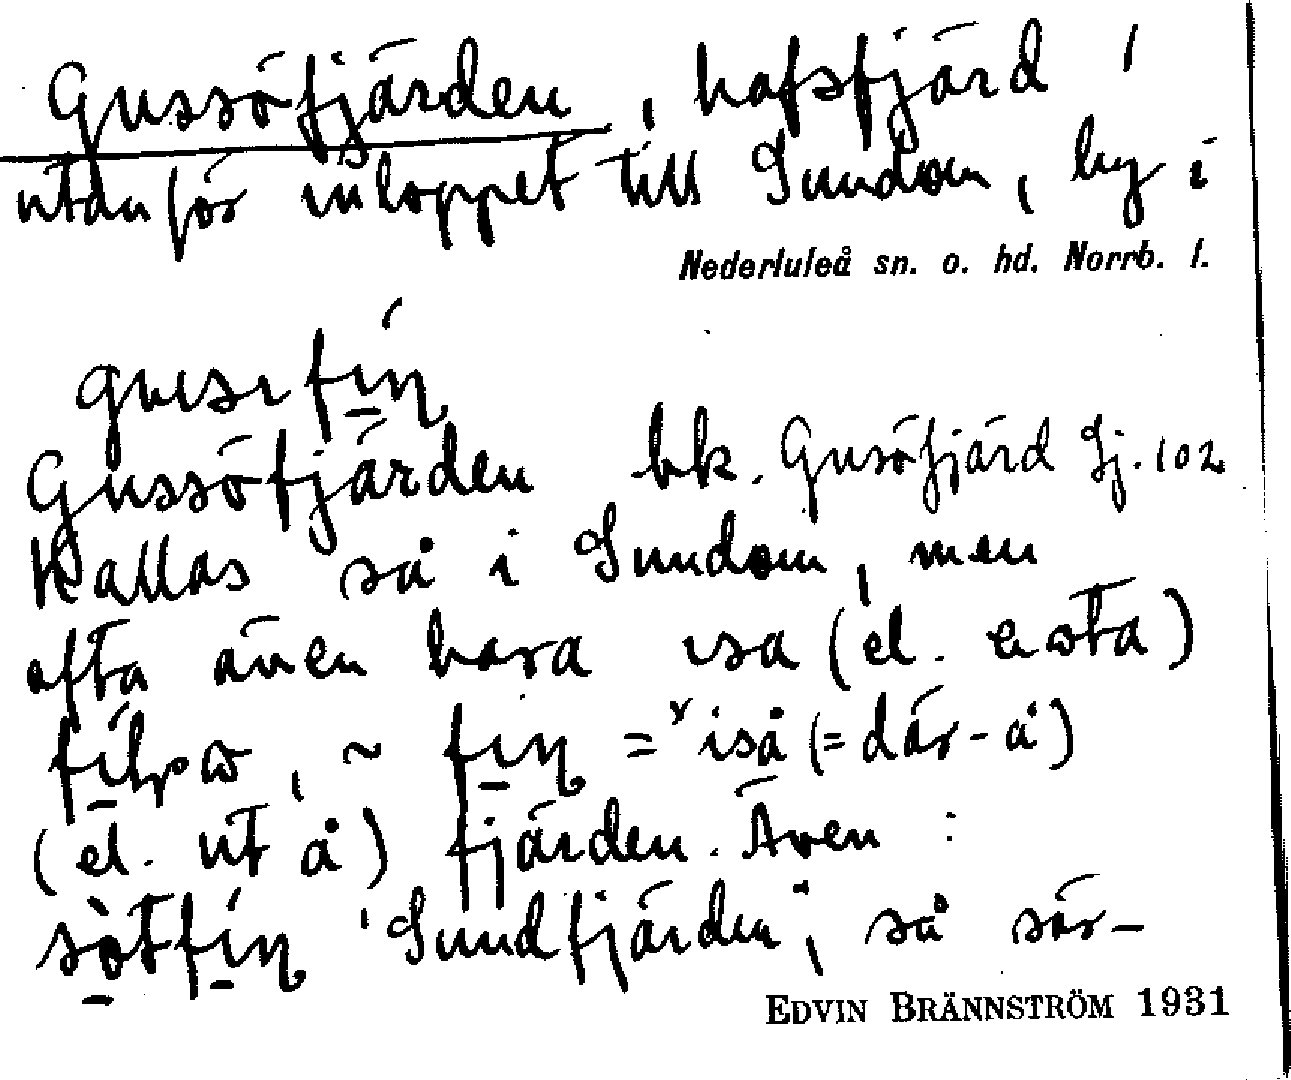 Gussöfjärden, hafsfjärd
utanför inloppet till Sundom, by i
Nederluleå sn. o. hd. Norrb. l.
Gussöfjärden bk. Gusöfjärd Sj. 102
Kallas så i Sundom, men
ofta även bara
= iså (= där-å)
(el. ut å) fjärden. Även:
'Sundfjärden', så sär-
EDVIN BRÄNNSTRÖM 1931